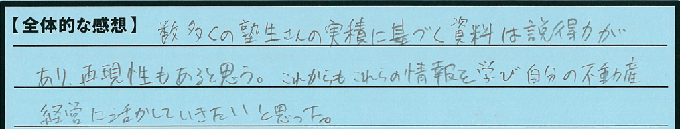 【全体的な感想】 数多くの塾生さんの実積に基づく資料は説得力が
あり、再現性もあると思う。これからもこれらの情報を学び自分の不動産
経営に活かしていきたいと思った。